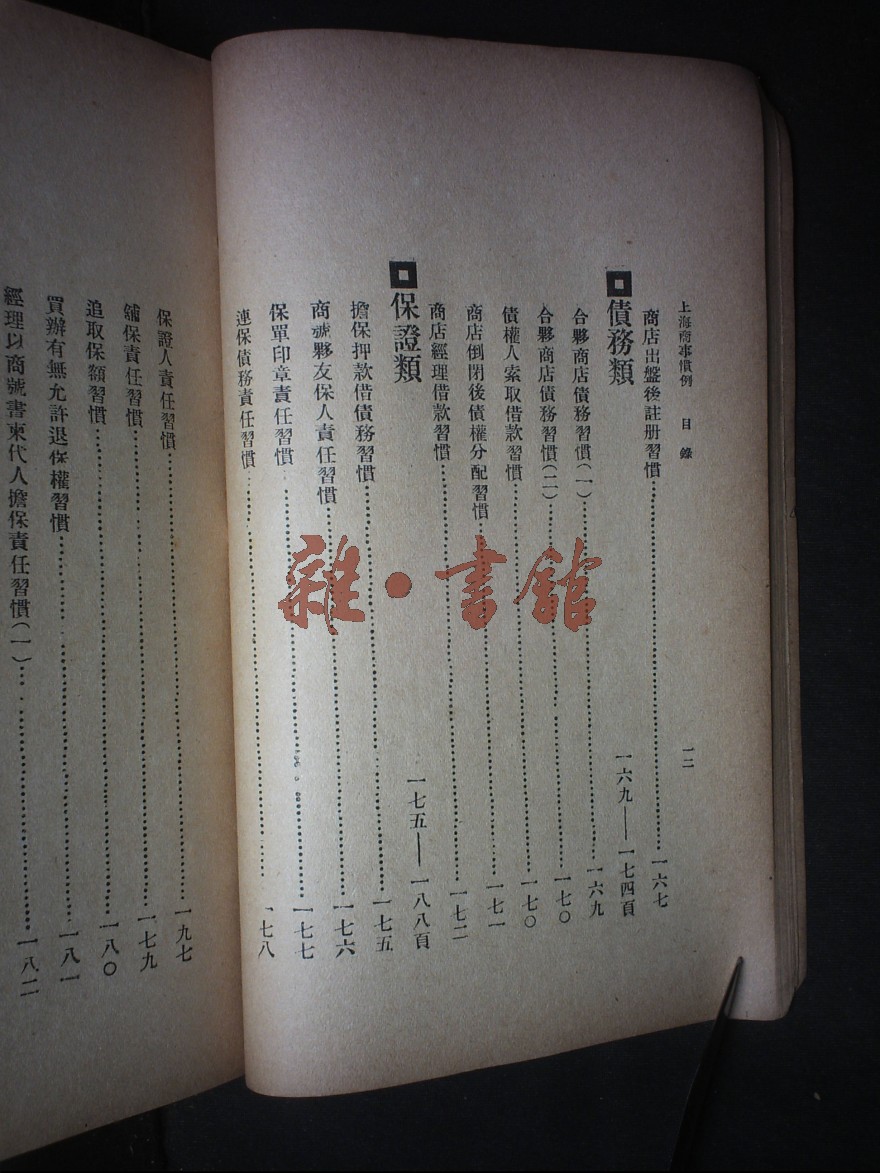 上海商事慣例 目錄 一二
商店出盤後註册習慣 一六七
債務類 一六九——一七四頁
合夥商店債務習慣(一) 一六九
合夥商店債務習慣(二) 一七〇
債權人索取借款習慣 一七〇
商店倒閉後債權分配習慣 一七一
商店經理借款習慣 一七二
保證類 一七五——一八八頁
擔保押款借債務習慣 一七五
商號夥友保人責任習慣 一七六
保單印章責任習慣 一七七
連保債務責任習慣 一七八
保證人責任習慣 一九七
舖保責任習慣 一七九
追取保額習慣 一八〇
買辦有無允許退保權習慣 一八一
經理以商號書柬代人擔保責任習慣(一) 一八二
雜·書館